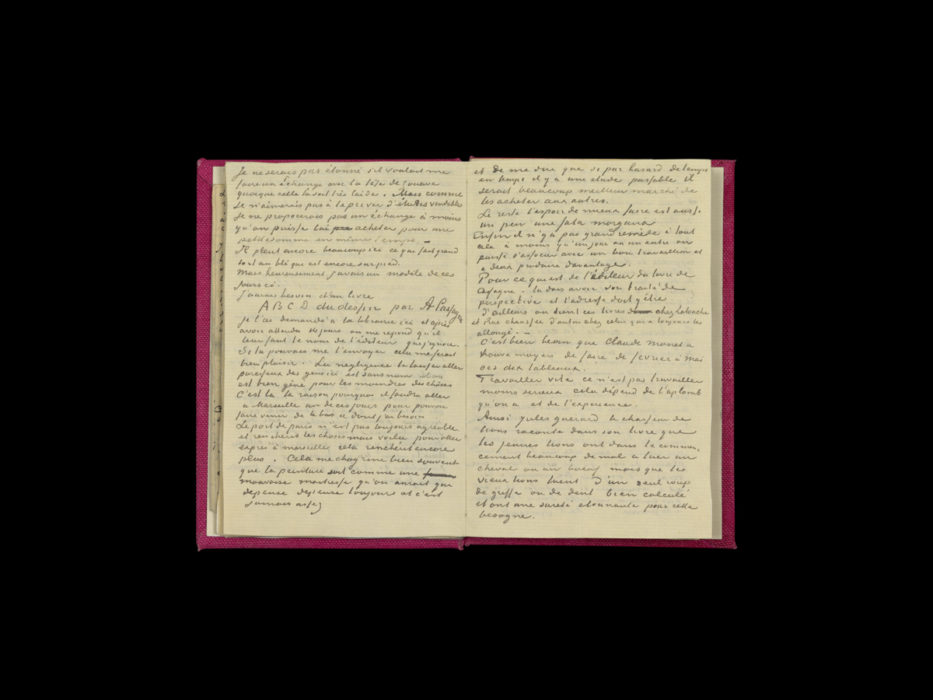 Je ne serais pas étonné s'il voulait me
faire un échange avec la tête de zouave
quoique celle là soit très laide. Mais comme
Je n'aimerais pas à te priver d'études vendables
Je ne proposerais pas un échange à moins
qu'on puisse lui acheter pour une
petite somme en même temps. —
Il pleut encore beaucoup ici ce qui fait grand
tort au blé qui est encore sur pied.
Mais heureusement j'avais un modèle de ces
jours ci.
j'aurais besoin d'un livre
A B C D du dessin par A
je l'ai demandé à la librairie ici et après
avoir attendu jours on me repond qu'il
leur faut le nom de l'éditeur que j'ignore.
Si tu pouvais me l'envoyer cela me ferait
bien plaisir. La negligence le laisser aller
paresseux des gens ici est sans nom
est bien gêné pour les moindres des choses
C'est là la raison pourquoi il faudra aller
à Marseille un de ces jours pour pouvoir
faire venir de là bas ce dont j'ai besoin
Le port de paris n'est pas toujours agréable
et renchérit les choses mais voilà pour aller
exprès à marseille cela renchérit encore
plus. Cela me chagrine bien souvent
que la peinture soit comme une
mauvaise maitresse qu'on aurait qui
depense depense toujours et c'est
jamais assez
et de me dire que si par hasard de temps
en temps il y a une etude passable il
serait beaucoup meilleur marché de
les acheter aux autres.
Le reste l'espoir de mieux faire est aussi
un peu une fata morgana
Enfin il n'y a pas grand remède à tout
cela à moins qu'un jour ou un autre on
puisse s'associer avec un bon travailleur et
à deux produire davantage.
Pour ce qui est de l'éditeur du livre de
Cassagne. tu dois avoir son traité de
perspective et l'adresse doit y être
d'ailleurs on tient ces livres chez Latouche
et Rue chaussee d'antin chez celui qui a toujours les
allongé. —
C'est bien beau que Claude Monet a
trouvé moyen de faire de fevrier à Mai
ces dix tableaux.
Travailler vite ce n'est pas travailler
moins serieux cela dépend de l'aplomb
qu'on a et de l'experience.
Ainsi Jules guerard le chasseur de
lions raconte dans son livre que
les jeunes lions ont dans le commen
cement beaucoup de mal à tuer un
cheval ou un boeuf mais que les
vieux lions tuent d'un seul coup
de griffe ou de dent bien calculé
et ont une sureté etonnante pour cette
besogne.